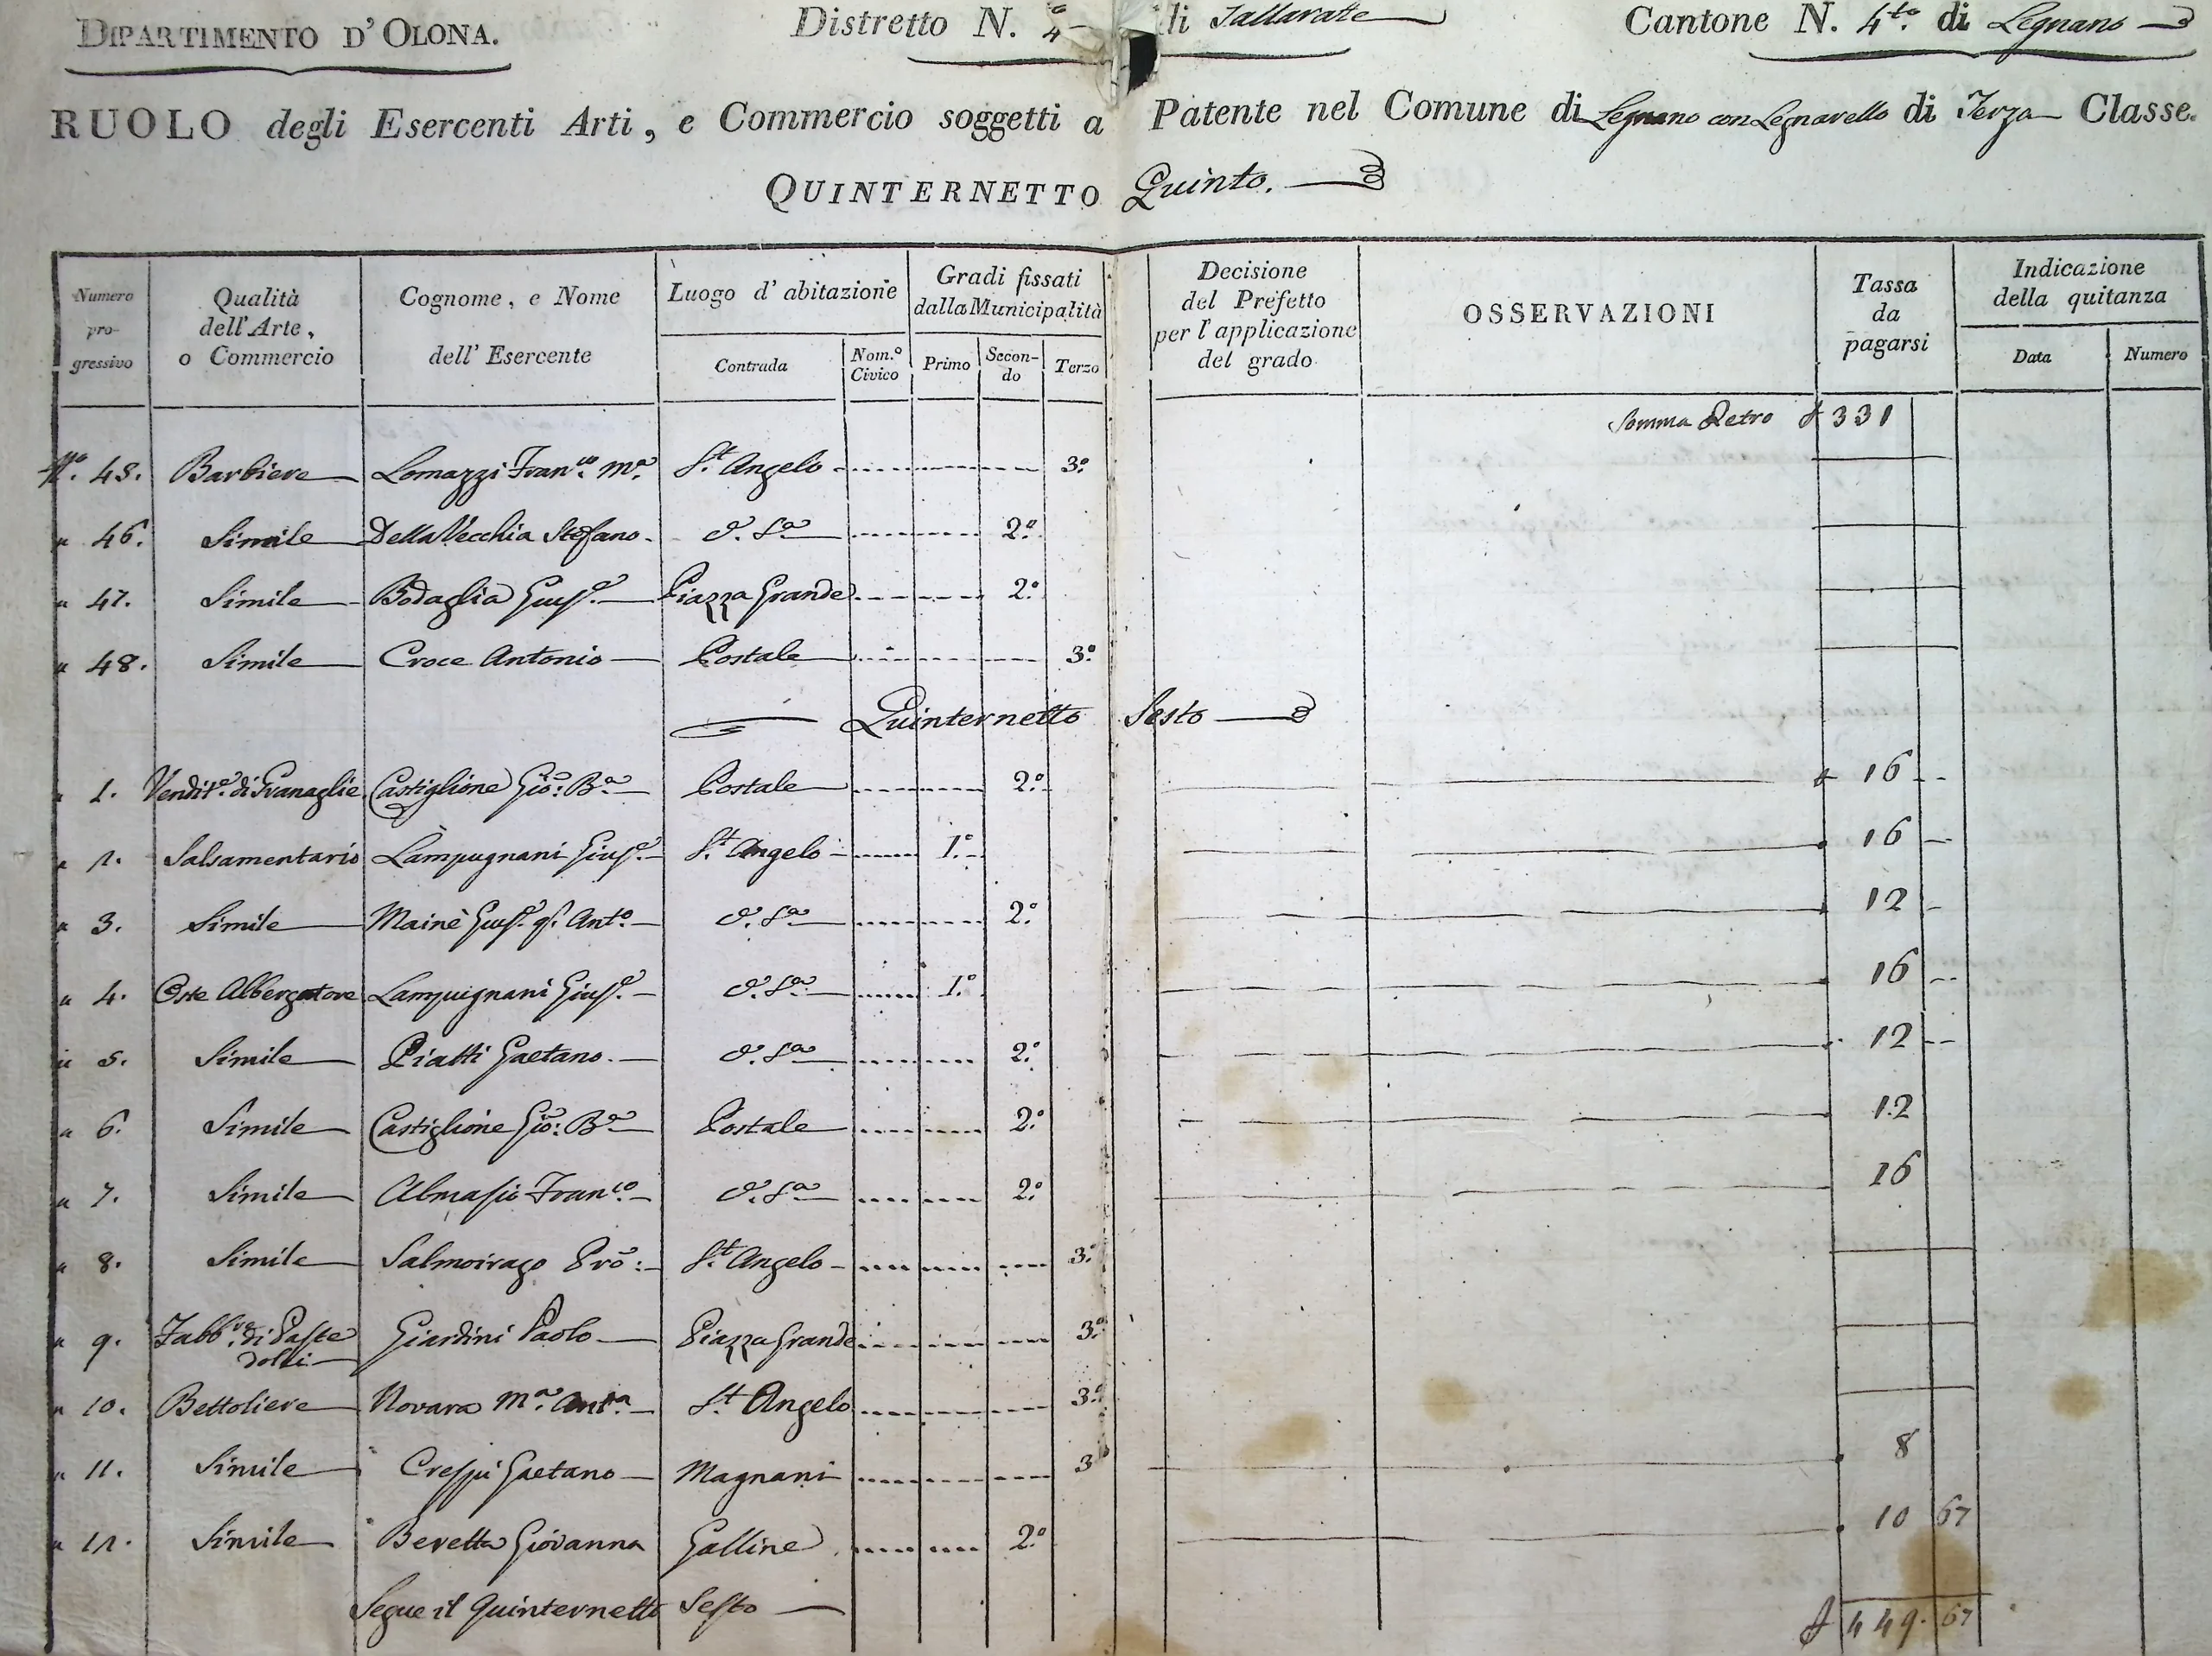 DIPARTIMENTO D'OLONA. Distretto N. 4º di Gallarate Cantone N. 4.to di Legnano
RUOLO degli Esercenti Arti, e Commercio soggetti a Patente nel Comune di Legnano con Legnarello di Terza Classe.
QUINTERNETTO Quinto.
Numero pro- gressivo Qualità dell'Arte, o Commercio Cognome, e Nome dell'Esercente Luogo d'abitazione Contrada Nom.º Civico Gradi fissati dalla Municipalità Primo Secon- do Terzo Decisione del Prefetto per l'applicazione del grado OSSERVAZIONI Tassa da pagarsi Indicazione della quitanza Data Numero
Somma Retro 331
Nº. 45. Barbiere Lomazzi Fran.co M.a S.t Angelo 3.º
" 46. Simile Della Vecchia Stefano d. S.a 2.º
" 47. Simile Bodaglia Gius.e Piazza Grande 2.º
" 48. Simile Croce Antonio Postale 3.º
Quinternetto Sesto
" 1. Vendit.e di Granaglie Castiglione Gio: B.a Postale 2.º 16 --
" 2. Salsamentario Lampugnani Gius.e S.t Angelo 1.º 16 -
" 3. Simile Mainè Gius.e q.m Ant.o d. S.a 2.º 12 -
" 4. Oste Albergatore Lampugnani Gius.e d. S.a 1.º 16 --
" 5. Simile Piatti Gaetano d. S.a 2.º 12 --
" 6. Simile Castiglione Gio: B.a Postale 2.º 12
" 7. Simile Almasio Fran.co d. S.a 2.º 16
" 8. Simile Salmoirago Pro: S.t Angelo 3.º
" 9. Fabb.re di Paste Giardini Paolo Piazza Grande 3.º
dolci
" 10. Bettoliere Novara M.a Ant.a S.t Angelo 3.º
" 11. Simile Crespi Gaetano Magnani 3º 8
" 12. Simile Beretta Giovanna Galline 2.º 10 67
Segue il Quinternetto Sesto 449. 67